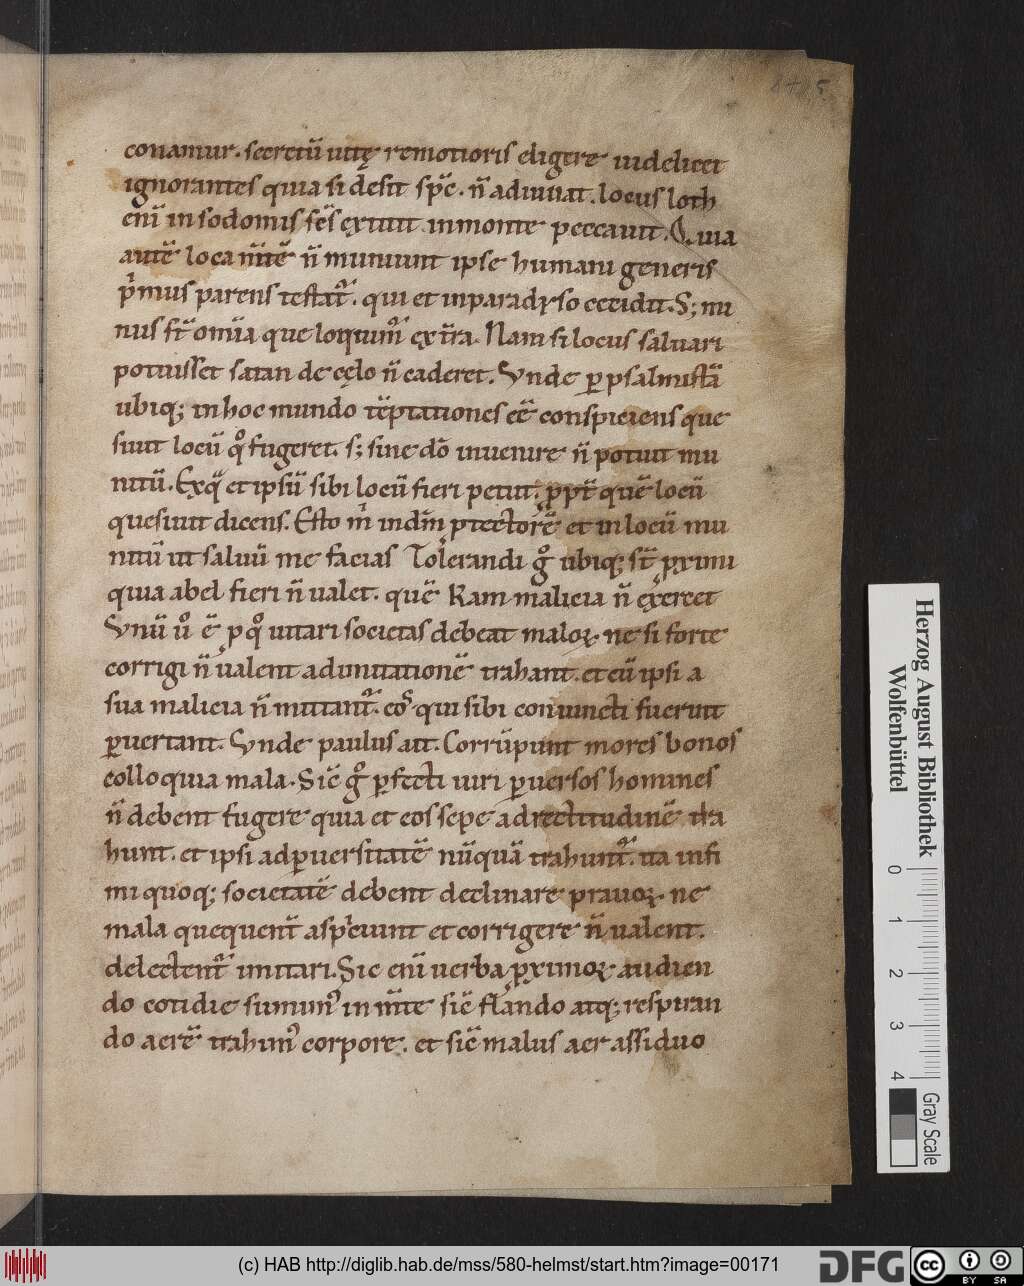 conamur. secretū uitę remotioris eligere uidelicet
ignorantes quia si desit spc̄. n̄ adiuuat. locus loth
enī in sodomis sc̄s extitit in monte peccauit. Quia
autē loca mītē n̄ muniunt ipse humani generis
p̄mus parens testat᷑. qui et in paradyso cecidit. S; mi
nus st̄ omīa que loquim᷑ ex tr̄a. Nam si locus saluari
potuisset satan de cęlo n̄ caderet. Vnde ꝑ psalmistā
ubiq; in hoc mundo tēptationes eē conspiciens que
siuit locū qͦ fugeret. s; sine dō inuenire n̄ potuit mu
nitū. Ex qͣ et ipsū sibi locū fieri petiit. ꝓpt̄ quē locū
quesiuit dicens. Esto m̄ in dm̄ ꝓtectorē et in locū mu
nitū ut saluū me facias Tolerandi gͦ ubiq; st̄ ꝓximi
quia abel fieri n̄ ualet. quē Kam malicia n̄ exercet
Vnū uͦ ē ꝓ qͦ uitari societas debeat maloꝝ. ne si forte
corrigi n̄ ualent ad imitationē trahant. et cū ipsi a
sua malicia n̄ mutant᷑. eos qui sibi coniuncti fuerint
ꝑuertant. Vnde paulus ait. Corrūpunt mores bonos
colloquia mala. Sic̄ gͦ ꝑfecti uiri ꝑuersos homines
n̄ debent fugere quia et eos sepe ad rectitudinē tra
hunt. et ipsi ad ꝑuersitatē nūquā trahunt᷑. ita infi
mi quoq; societatē debent declinare prauoꝝ. ne
mala que quent̄ aspiciunt et corrigere n̄ ualent.
delectent᷑ imitari. Sic enī uerba ꝓximoꝝ audien
do cotidie sumim᷒ in m̄te sic̄ flando atq; respiran
do aerē trahim᷒ corpore. et sic̄ malus aer assiduo
Herzog August Bibliothek
Wolfenbüttel
0 1 2 3 4
Gray Scale
(c) HAB http://diglib.hab.de/mss/580-helmst/start.htm?image=00171
DFG
cc BY SA